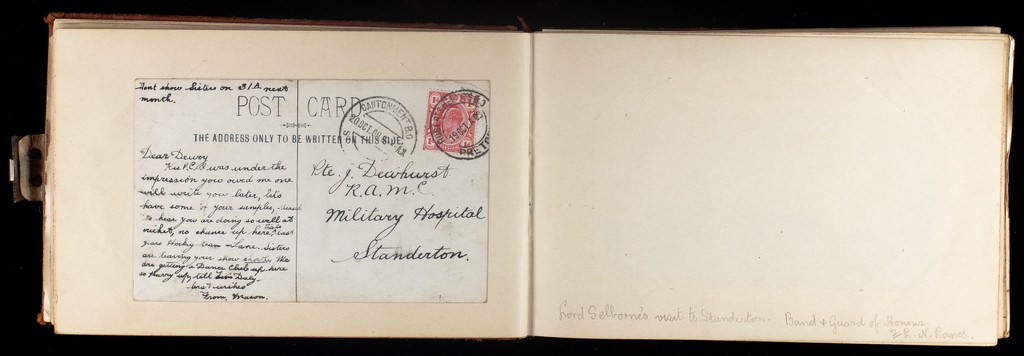 Dont show Sisters on 31/12 next
month.
POST CARD
THE ADDRESS ONLY TO BE WRITTEN ON THIS SIDE.
CANTONMENT B.O
20 OCT 09
19 OCT
PRETO
Dear Dewry
P.C. I was under the
impression you owed me one
will write you later, lets
have some of your samples,
to hear you are doing so well at
cricket, no chance up here, last
years Hocky team Lane. Sisters
are leaving your show shortly We
are getting a Dance Club up here
so hurry up, tell Daly.
best wishes
From, Mason.
Pte. J. Dewhurst
R.A.M.C.
Military Hospital
Standerton.
Lord Selborne's visit to Standerton. Band & Guard of Honour.
N. Lancs.